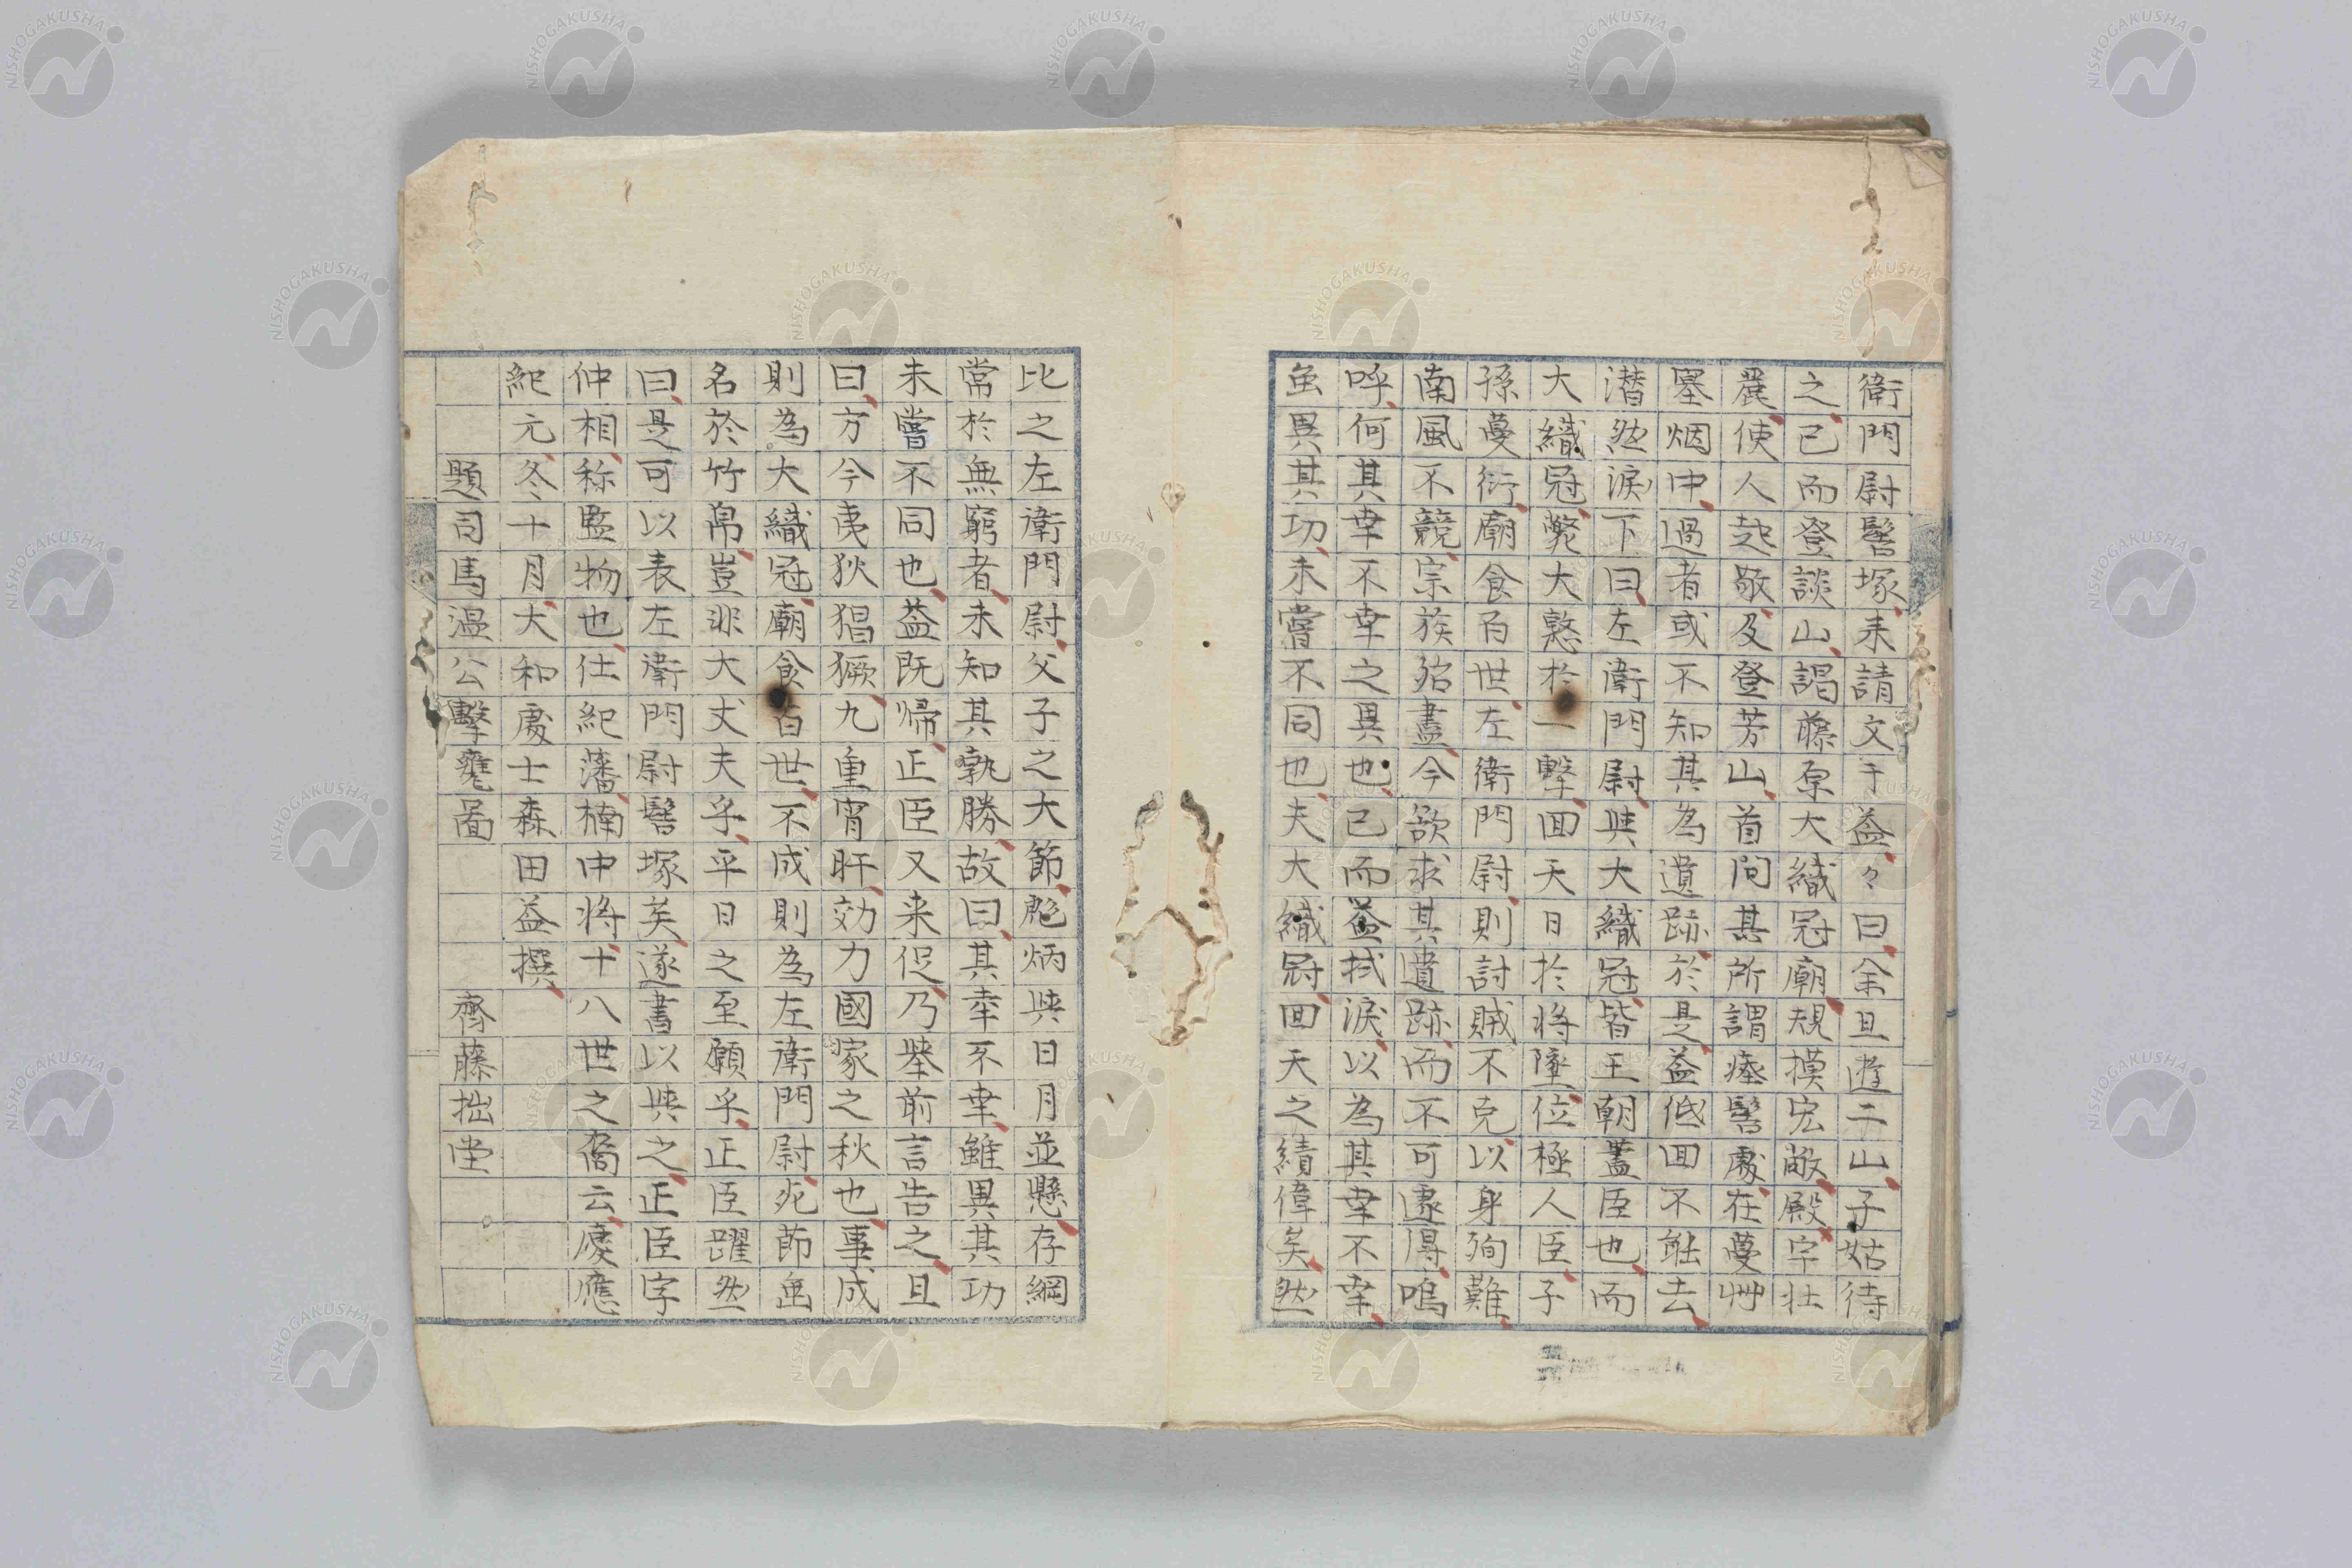 衛門尉髻塚来請文于益々曰余且遊二山子姑待
之已而登談山謁藤原大織冠廟規摸宏敞殿宇壮
麗使人起敬及登芳山首問其所謂瘞髻處在蔓艸
塞烟中過者或不知其為遺跡於是益低回不能去
潜然涙下曰左衛門尉與大織冠皆王朝藎臣也而
大織冠斃大憝於一擊回天日於将墜位極人臣子
孫蔓衍廟食百世左衛門尉則討賊不克以身殉難
南風不競宗族殆盡今欲求其遺跡而不可遽得嗚
呼何其幸不幸之異也已而益拭涙以為其幸不幸
虽異其功未嘗不同也夫大織冠回天之績偉矣然
比之左衛門尉父子之大節彪炳與日月並懸存綱
常於無窮者未知其孰勝故曰其幸不幸雖異其功
未嘗不同也益既帰正臣又来促乃挙前言告之且
曰方今夷狄猖獗九重宵旰効力國家之秋也事成
則為大織冠廟食百世不成則為左衛門尉死節垂
名於竹帛豈非大丈夫乎平日之至願乎正臣躍然
曰是可以表左衛門尉髻塚矣遂書以與之正臣字
仲相称監物也仕紀藩楠中将十八世之裔云慶應
紀元冬十月大和處士森田益撰
題司馬温公擊甕圖 齊藤拙堂
NISHOGAKUSHA